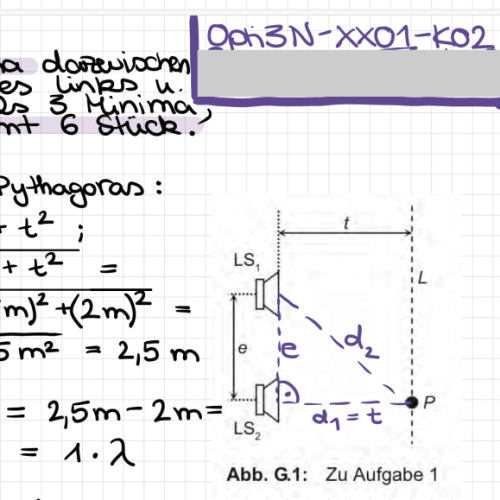 Oph3N-XX01-K02
dazwischen
es links u.
3 Minima,
6 Stück.
Pythagoras:
+ t² ;
+ t² =
m)² + (2m)² =
5 m² = 2,5 m
= 2,5m - 2m =
= 1 · λ
t
LS₁
L
e
e
d₂
P
LS₂
d₁ = t
Abb. G.1: Zu Aufgabe 1